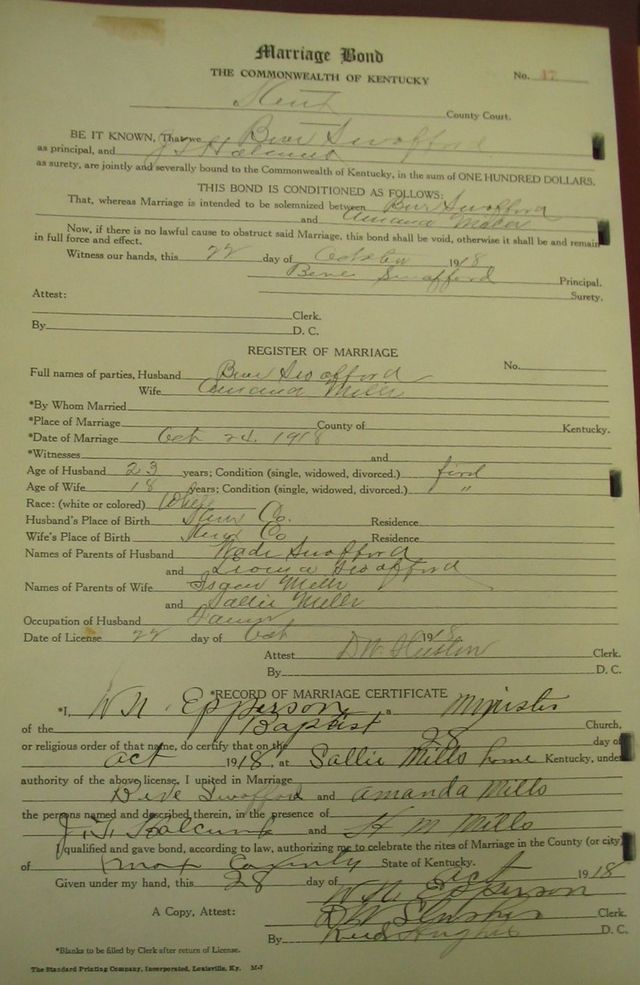 Marriage Bond
THE COMMONWEALTH OF KENTUCKY
No. 17
County Court.
BE IT KNOWN, That we Swafford
as principal, and
as surety, are jointly and severally bound to the Commonwealth of Kentucky, in the sum of ONE HUNDRED DOLLARS.
THIS BOND IS CONDITIONED AS FOLLOWS:
That, whereas Marriage is intended to be solemnized between Swafford
and
Now, if there is no lawful cause to obstruct said Marriage, this bond shall be void, otherwise it shall be and remain
in full force and effect.
Witness our hands, this 22 day of October 1918
Swafford Principal.
Surety.
Attest:
Clerk.
By D. C.
REGISTER OF MARRIAGE
Full names of parties, Husband Swafford No.
Wife Mills
*By Whom Married
*Place of Marriage County of Kentucky.
*Date of Marriage Oct 24. 1918
*Witnesses and
Age of Husband 23 years; Condition (single, widowed, divorced.) first
Age of Wife 18 years; Condition (single, widowed, divorced.) "
Race: (white or colored) White
Husband's Place of Birth Co. Residence
Wife's Place of Birth Co Residence
Names of Parents of Husband Swafford
and Swafford
Names of Parents of Wife Mills
and Sallie Mills
Occupation of Husband Farmer
Date of License 22 day of Oct 1918.
Attest Clerk.
By D. C.
*RECORD OF MARRIAGE CERTIFICATE
*I, W N Epperson a Minister
of the Baptist Church,
or religious order of that name, do certify that on the 28 day of
oct 1918, at Sallie Mills home Kentucky, under
authority of the above license, I united in Marriage
Swafford and Amanda Mills
the persons named and described therein, in the presence of
and H M Mills
I qualified and gave bond, according to law, authorizing me to celebrate the rites of Marriage in the County (or city)
of County State of Kentucky.
Given under my hand, this 28 day of oct 1918
W N Epperson
A Copy, Attest: Clerk.
By Hughes D. C.
*Blanks to be filled by Clerk after return of License.
The Standard Printing Company, Incorporated, Louisville, Ky. M-7